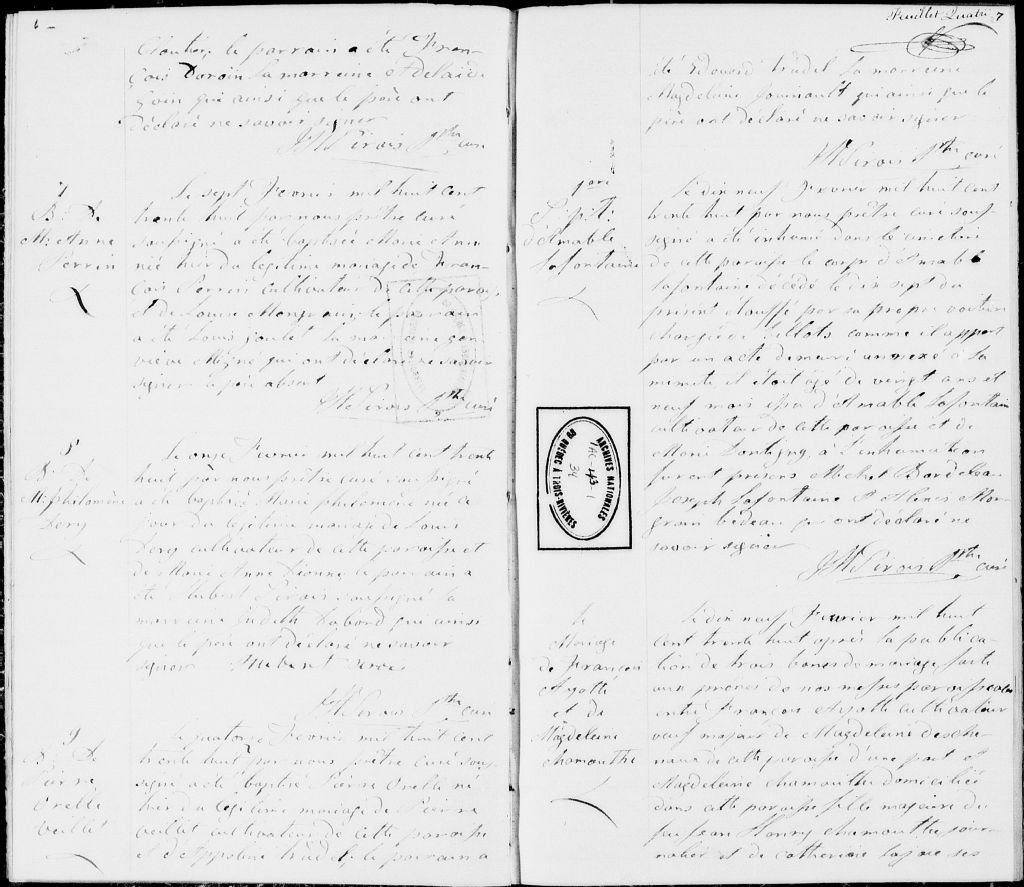 6 -
le parrain a été Fran-
çois la marraine Adelaide
qui ainsi que le père ont
déclaré ne savoir signer
Ptre curé
7
B: De
M: Anne
Perrin
Le sept Fevrier mil huit cent
trente huit par nous prêtre curé
soussigné a été baptisée Marie Anne
née hier du legitime mariage de Fran-
çois Perrin cultivateur de cette paroisse
et de Louise Mongrain; le parrain
a été Louis la marraine Gen-
viève qui ont déclaré ne savoir
signer le père absent
Ptre curé
8
B: De
M: philomène
Dery
Le onze Fevrier mil huit cent trente
huit par nous prêtre curé soussigné
a été baptisée Marie philomène née ce
jour du legitime mariage de Louis
Dery cultivateur de cette paroisse et
de Marie Anne Dionne le parrain a
été Hubert soussigné la
marraine Judith qui ainsi
que le père ont déclaré ne savoir
signer Hubert
Ptre curé
9
B: De
Pierre
Orelle
Veillet
Le quatorze Fevrier mil huit cent
trente huit par nous prêtre curé sous-
signé a été baptisé Pierre Orelle né
hier du legitime mariage de Pierre
veillet cultivateur de cette paroisse
et d'Appoline trudel; le parrain a
Feuillet Quatre 7
été Edouard trudel la marraine
Magdeleine qui ainsi que le
père ont déclaré ne savoir signer
Ptre curé
S: pt:
d'Amable
Lafontaine
Le dix neuf Fevrier mil huit cent
trente huit par nous prêtre curé sous-
signé a été inhumé dans le cimetière
de cette paroisse le corps d'Amable
Lafontaine décédé le dix sept du
présent étouffé par sa propre voiture
chargée de billots comme il appert
par un acte annexé à la
minute, il était âgé de vingt ans et
neuf mois issu d'Amable Lafontaine
cultivateur de cette paroisse et de
Marie à l'inhumation
furent présens Michel Bordeleau
Joseph Lafontaine et Mon-
grain bedeau qui ont déclaré ne
savoir signer
Ptre curé
ARCHIVES NATIONALES
DU QUÉBEC À TROIS-RIVIÈRES
Mariage
de François
Ayotte
et de
Magdeleine
Chamouthe
Le dix neuf Fevrier mil huit
cent trente huit après la publica-
tion de trois bans de mariage faite
aux prones de nos messes paroissiales
entre François Ayotte cultivateur
veuf majeur de Magdeleine desche-
naux de cette paroisse d'une part et
Magdeleine chamouthe domiciliée
dans cette paroisse fille majeure de
feu Jean Henry chamouthe jour-
nalier et de catherine ses